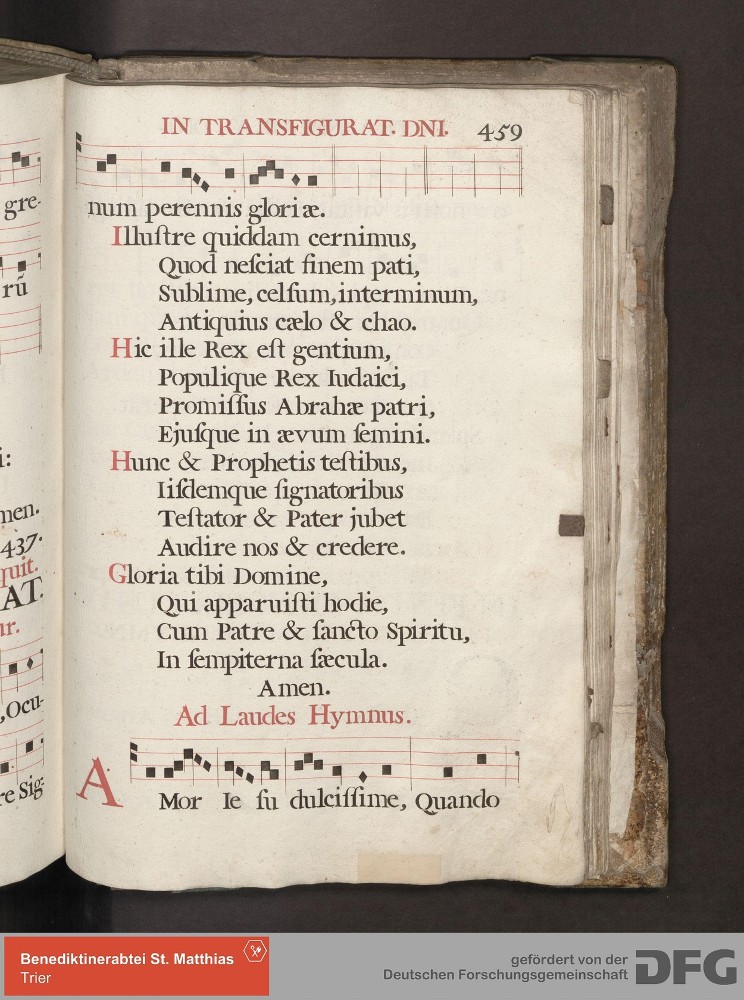 gre-
rū
i:
men.
437.
quit.
AT.
ur.
, Ocu-
re Sig-
IN TRANSFIGURAT. DNI. 459
num perennis gloriæ.
Illuſtre quiddam cernimus,
Quod neſciat finem pati,
Sublime, celſum, interminum,
Antiquius cælo & chao.
Hic ille Rex eſt gentium,
Populique Rex Iudaici,
Promiſſus Abrahæ patri,
Ejuſque in ævum ſemini.
Hunc & Prophetis teſtibus,
Iiſdemque ſignatoribus
Teſtator & Pater jubet
Audire nos & credere.
Gloria tibi Domine,
Qui apparuiſti hodie,
Cum Patre & ſancto Spiritu,
In ſempiterna ſæcula.
Amen.
Ad Laudes Hymnus.
AMor Ie ſu dulciſſime, Quando
Benediktinerabtei St. Matthias
Trier
gefördert von der
Deutschen Forschungsgemeinschaft
DFG